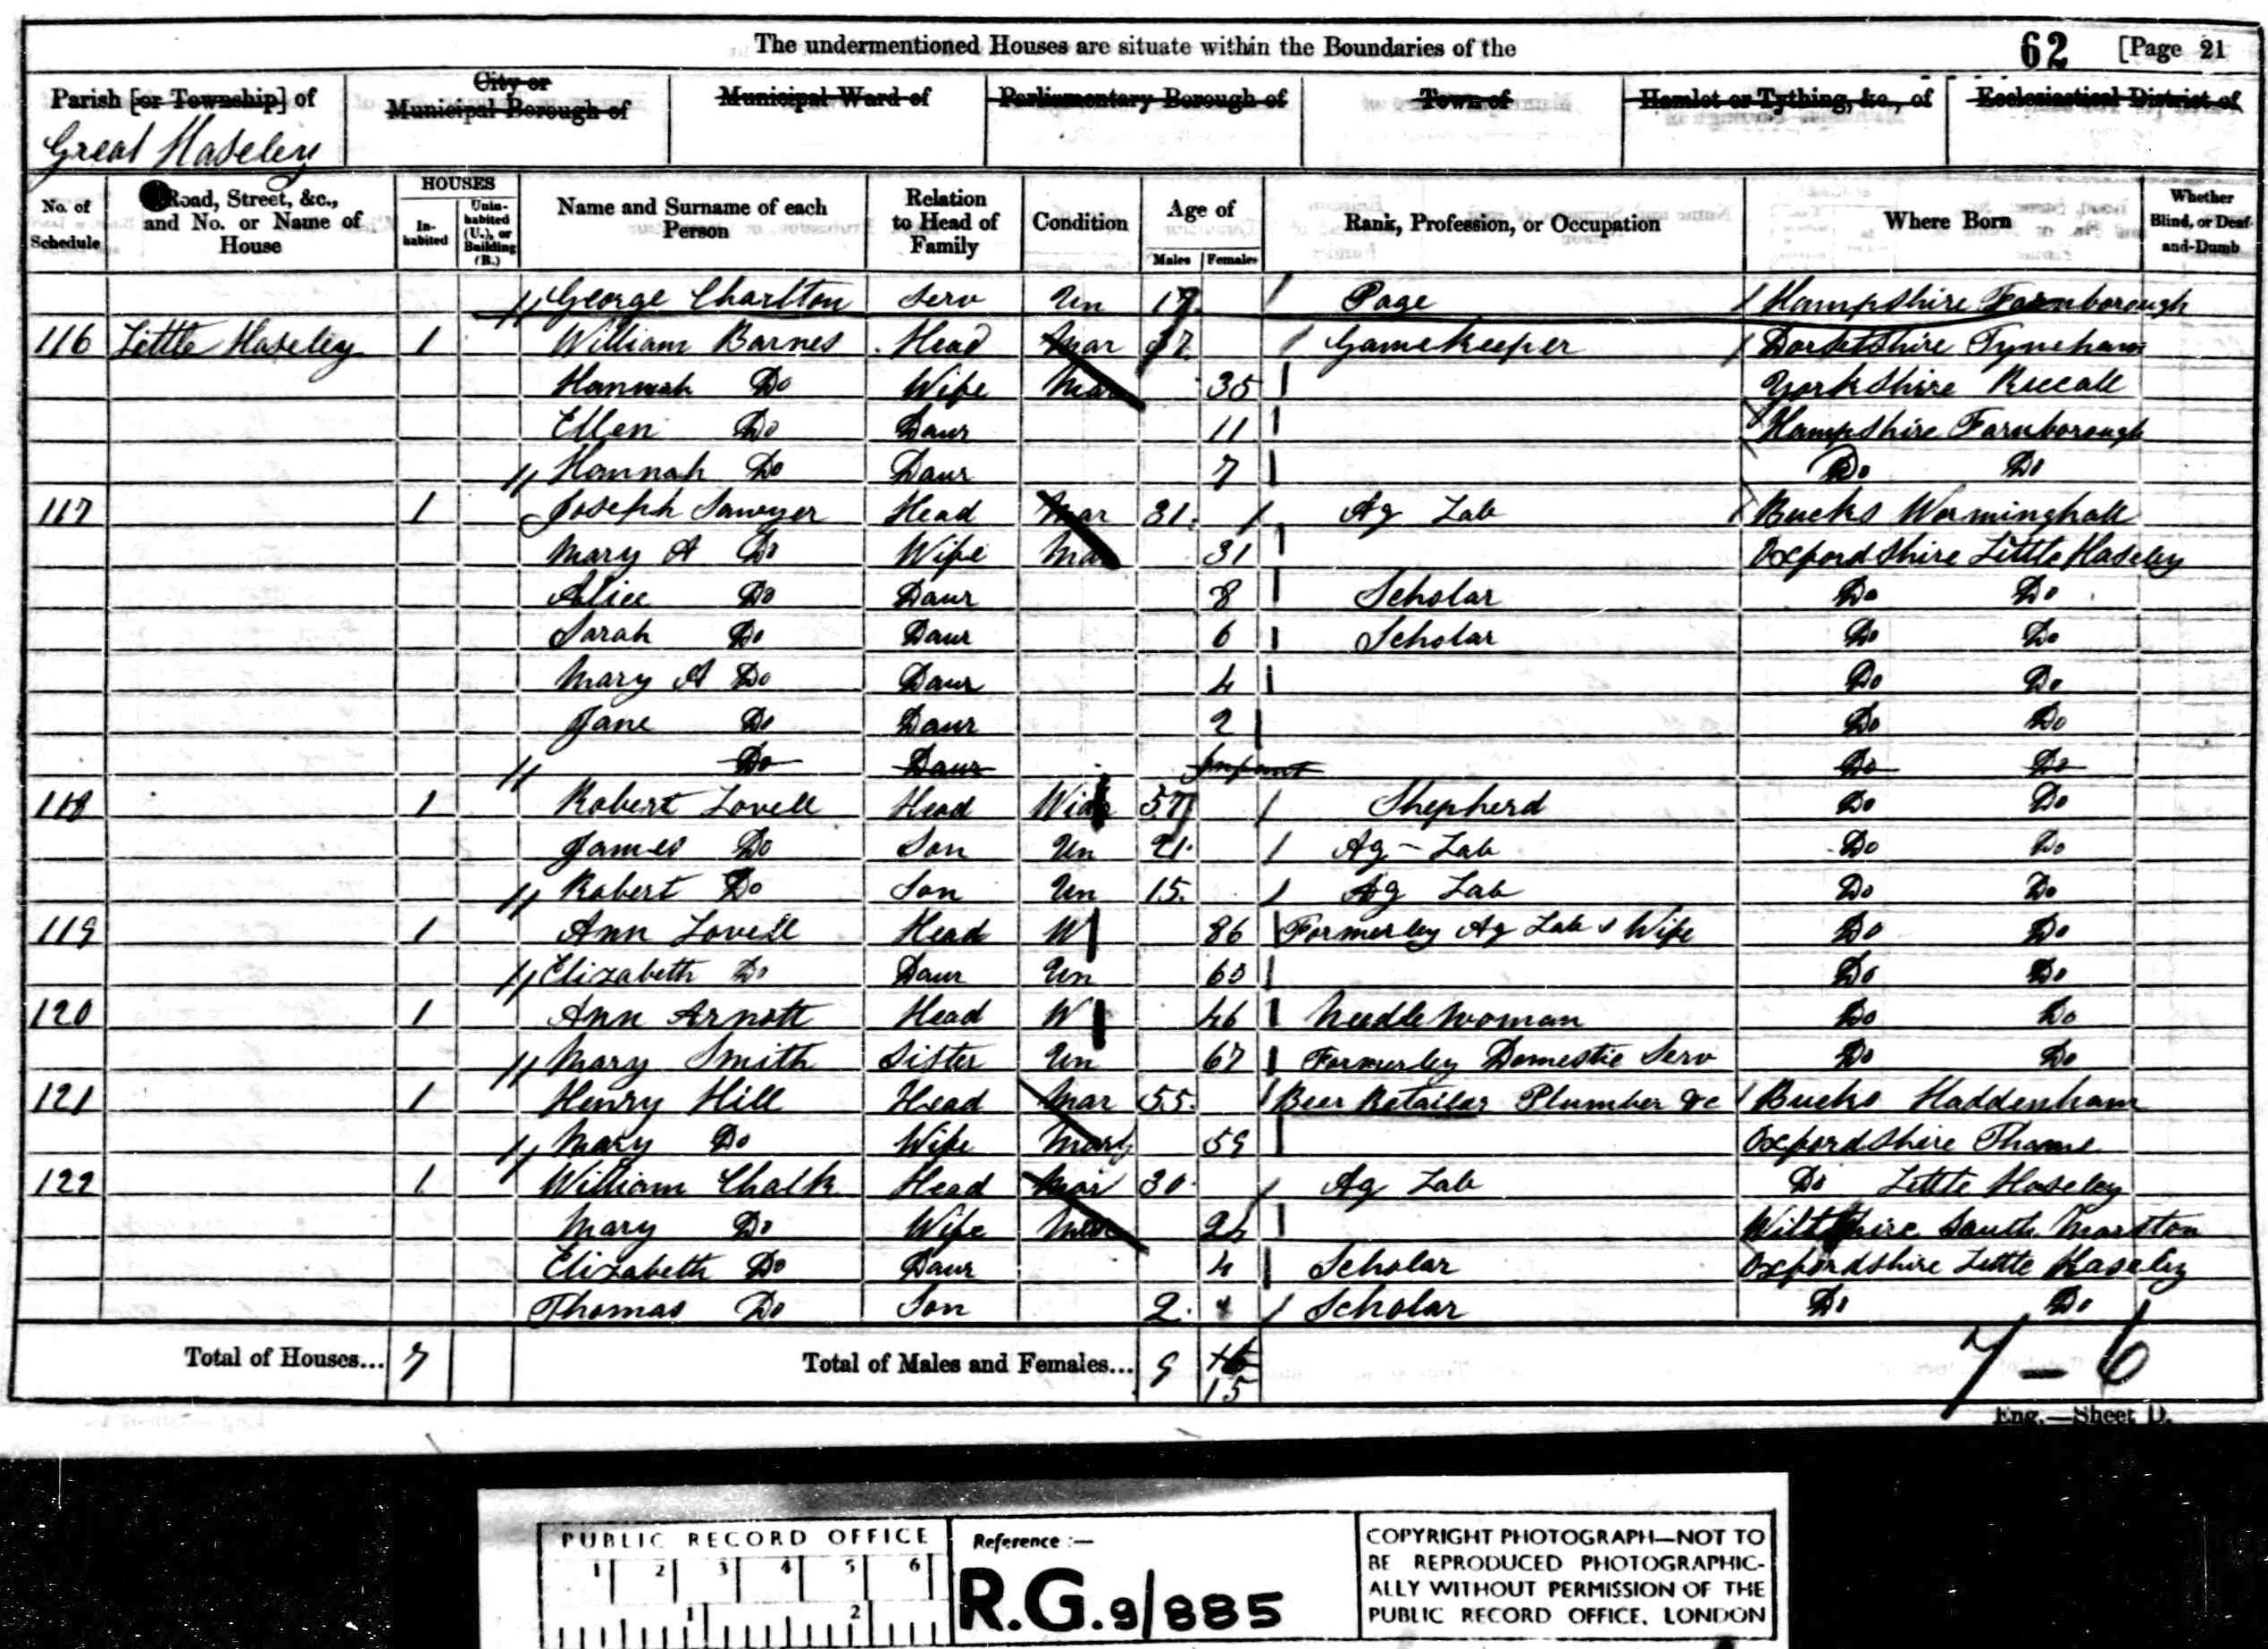 The undermentioned Houses are situate within the Boundaries of the 62 [Page 21
Parish [or Township] of City or Municipal Borough of Municipal Ward of Parliamentary Borough of Town of Hamlet or Tything, &c., of Ecclesiastical District of
Great Haseley
No. of Schedule Road, Street, &c., and No. or Name of House HOUSES Inhabited Uninhabited (U.), or Building (B.) Name and Surname of each Person Relation to Head of Family Condition Age of Males Females Rank, Profession, or Occupation Where Born Whether Blind, or Deaf-and-Dumb
George Charlton Serv Un 17 Page Hampshire Farnborough
116 Little Haseley 1 William Barnes Head Mar 37 Gamekeeper Dorsetshire Tyneham
Hannah Do Wife Mar 35 Yorkshire Riccall
Ellen Do Daur 11 Hampshire Farnborough
Hannah Do Daur 7 Do Do
117 1 Joseph Sawyer Head Mar 31 Ag Lab Bucks Worminghall
Mary A Do Wife Mar 31 Oxfordshire Little Haseley
Alice Do Daur 8 Scholar Do Do
Sarah Do Daur 6 Scholar Do Do
Mary A Do Daur 4 Do Do
Jane Do Daur 2 Do Do
Do Daur Infant Do Do
118 1 Robert Lovell Head Widr 57 Shepherd Do Do
James Do Son Un 21 Ag-Lab Do Do
Robert Do Son Un 15 Ag Lab Do Do
119 1 Ann Lovell Head W 86 Formerley Ag Labs Wife Do Do
Elizabeth Do Daur Un 60 Do Do
120 1 Ann Arnott Head W 46 Needle Woman Do Do
Mary Smith Sister Un 67 Formerley Domestic Serv Do Do
121 1 Henry Hill Head Mar 55 Beer Retailer Plumber &c Bucks Haddenham
Mary Do Wife Mary 59 Oxfordshire Thame
122 1 William Chalk Head Mar 30 Ag Lab Do Little Haseley
Mary Do Wife Mar 24 Wiltshire South Marston
Elizabeth Do Daur 4 Scholar Oxfordshire Little Haseley
Thomas Do Son 2 Scholar Do Do
Total of Houses... 7 Total of Males and Females... 9 16 15 7-6
Eng.—Sheet D.
PUBLIC RECORD OFFICE
1 2 3 4 5 6
1 2
Reference :—
R.G. 9/885
COPYRIGHT PHOTOGRAPH—NOT TO
BE REPRODUCED PHOTOGRAPHIC-
ALLY WITHOUT PERMISSION OF THE
PUBLIC RECORD OFFICE, LONDON